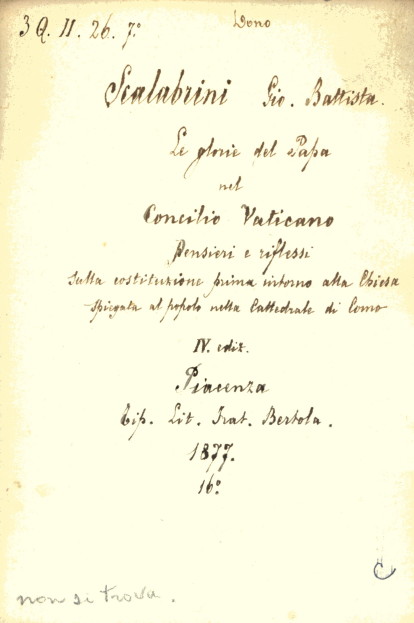 3 Q. II. 26. 7.º
Dono
Scalabrini Gio. Battista.
Le glorie del Papa
nel
Concilio Vaticano
Pensieri e riflessi
sulla costituzione prima intorno alla Chiesa
spiegata al popolo nella Cattedrale di Como
IV. ediz.
Piacenza
Tip. Lit. Frat. Bertola.
1877.
16º
non si trova.